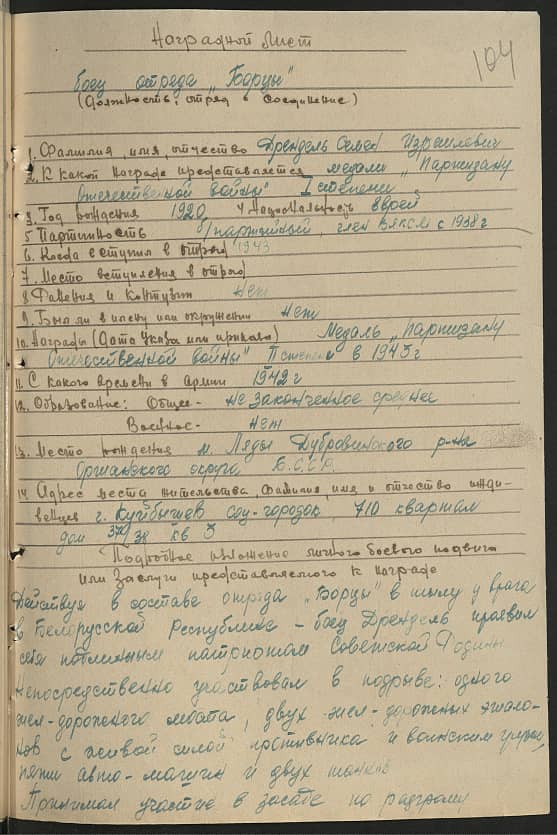 Наградной Лист
104
боец отряда „Борцы"
(Должность, отряд, соединение)
1. Фамилия имя, отчество Дрендель Семен Израилевич
2. К какой награде представляется медали „Партизану
Отечественной войны" I степени
3. Год рождения 1920 4 Национальность еврей
5 Партийность б/партийный, член ВЛКСМ с 1938 г
6. Когда вступил в отряд 1943
7. Место вступления в отряд
8 Ранения и контузии Нет
9. Был ли в плену или окружении Нет
10. Награды (Дата указа или приказа) Медаль „Партизану
Отечественной войны" II степени в 1943 г
11. С какого времени в армии 1942 г
12. Образование: Общее - не законченное среднее
Военное - нет
13. Место рождения м. Ляды Дубровинского р-на
Оршанского округа Б.С.С.Р.
14. Адрес места жительства, фамилия, имя и отчество ижди-
венцев г. Куйбышев Соц-городок, 710 квартал
дом 38 кв 3
Подробное изложение личного боевого подвига
или заслуги представляемого к награде
Действуя в составе отряда „Борцы" в тылу у врага
в Белорусской Республике - боец Дрендель проявил
себя подлинным патриотом Советской Родины
Непосредственно участвовал в подрыве: одного
жел-дорожного моста, двух жел-дорожных эшело-
нов с живой силой противника и воинским грузом,
пяти авто-машин и двух танков
Принимал участие в засаде по разгрому